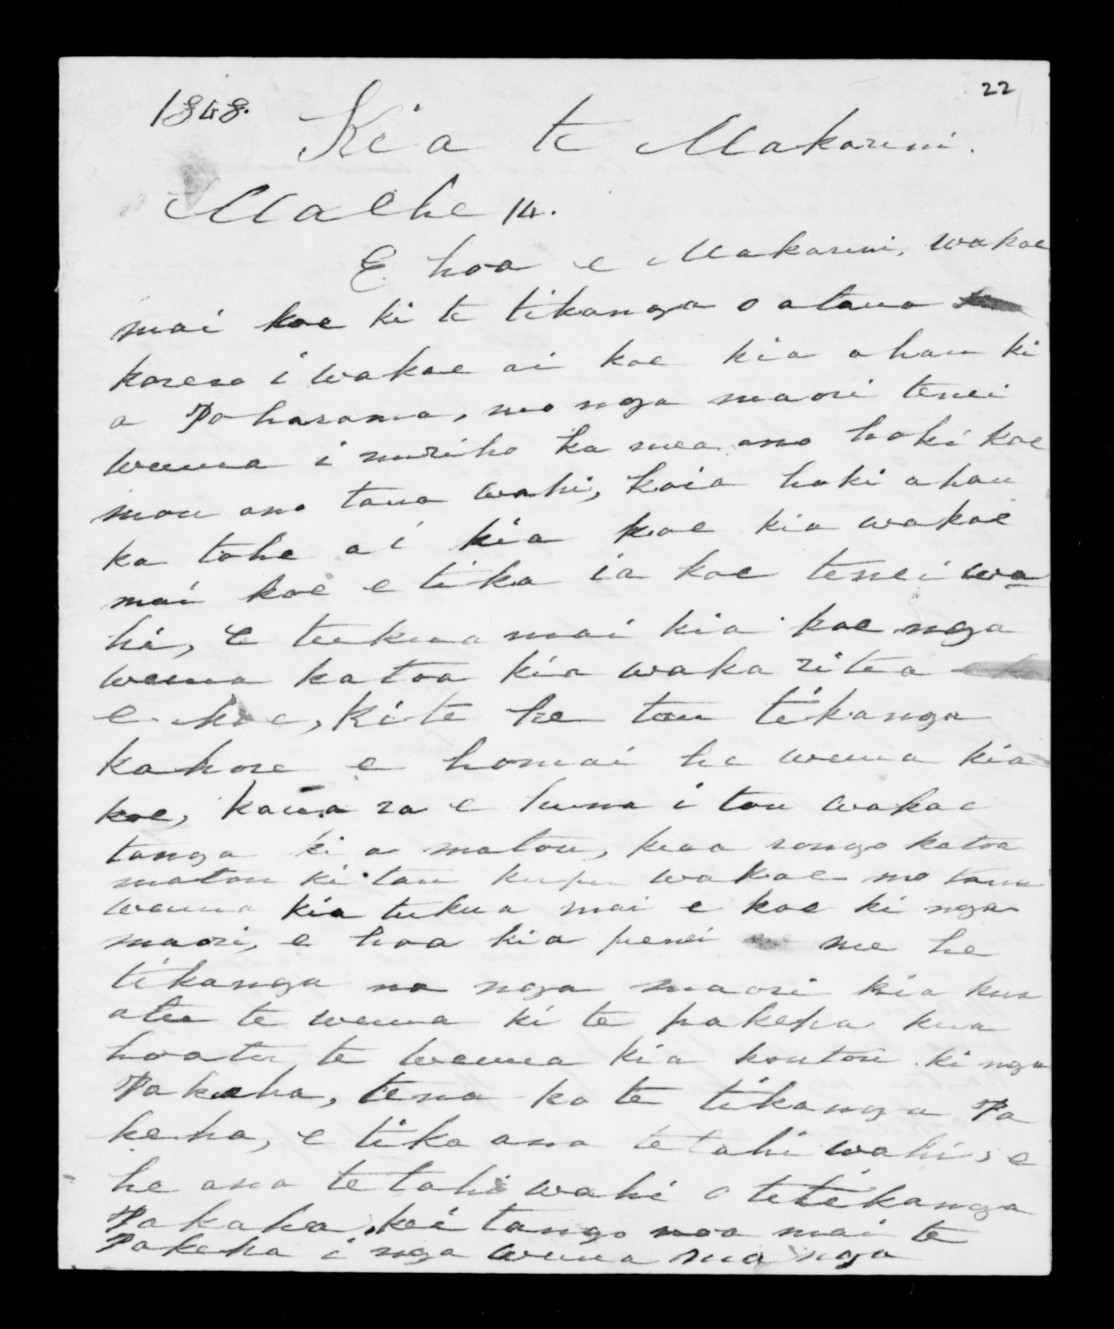 22
1848.
Kia te Makarini.
Maehe 14.
E hoa e Makarini, wakae
mai koe ki te tikanga o a taua
korero i wakae ai koe kia ahau ki
a Poharama, mo nga maori tenei
wenua i muriho ka mea ano hoki koe
mou ano taua wahi, koia hoki ahau
ka tohe ai kia koe kia wakae
mai koe e tika ia koe tenei wa
hi, e tukua mai kia koe nga
wenua katoa kia waka ritea
e koe, Ki te he tau tikanga
kahore e homai he wenua kia
koe, kaua ra e huna i tou wakae
tanga ki a matou, kua rongo katoa
matou ki tau kupu wakae mo taua
wenua kia tukua mai e koe ki nga
maori, e hoa kia penei me he
tikanga na nga maori kia kua
atu te wenua ki te pakeha kua
hoatu te wenua kia koutou ki nga
Pakeha, tena ko te tikanga Pa
keha, e tika ana te tahi wahi, e
he ana te tahi wahi o te tikanga
Pakaha, kei tango noa mai te
Pakeha i nga wenua ma nga